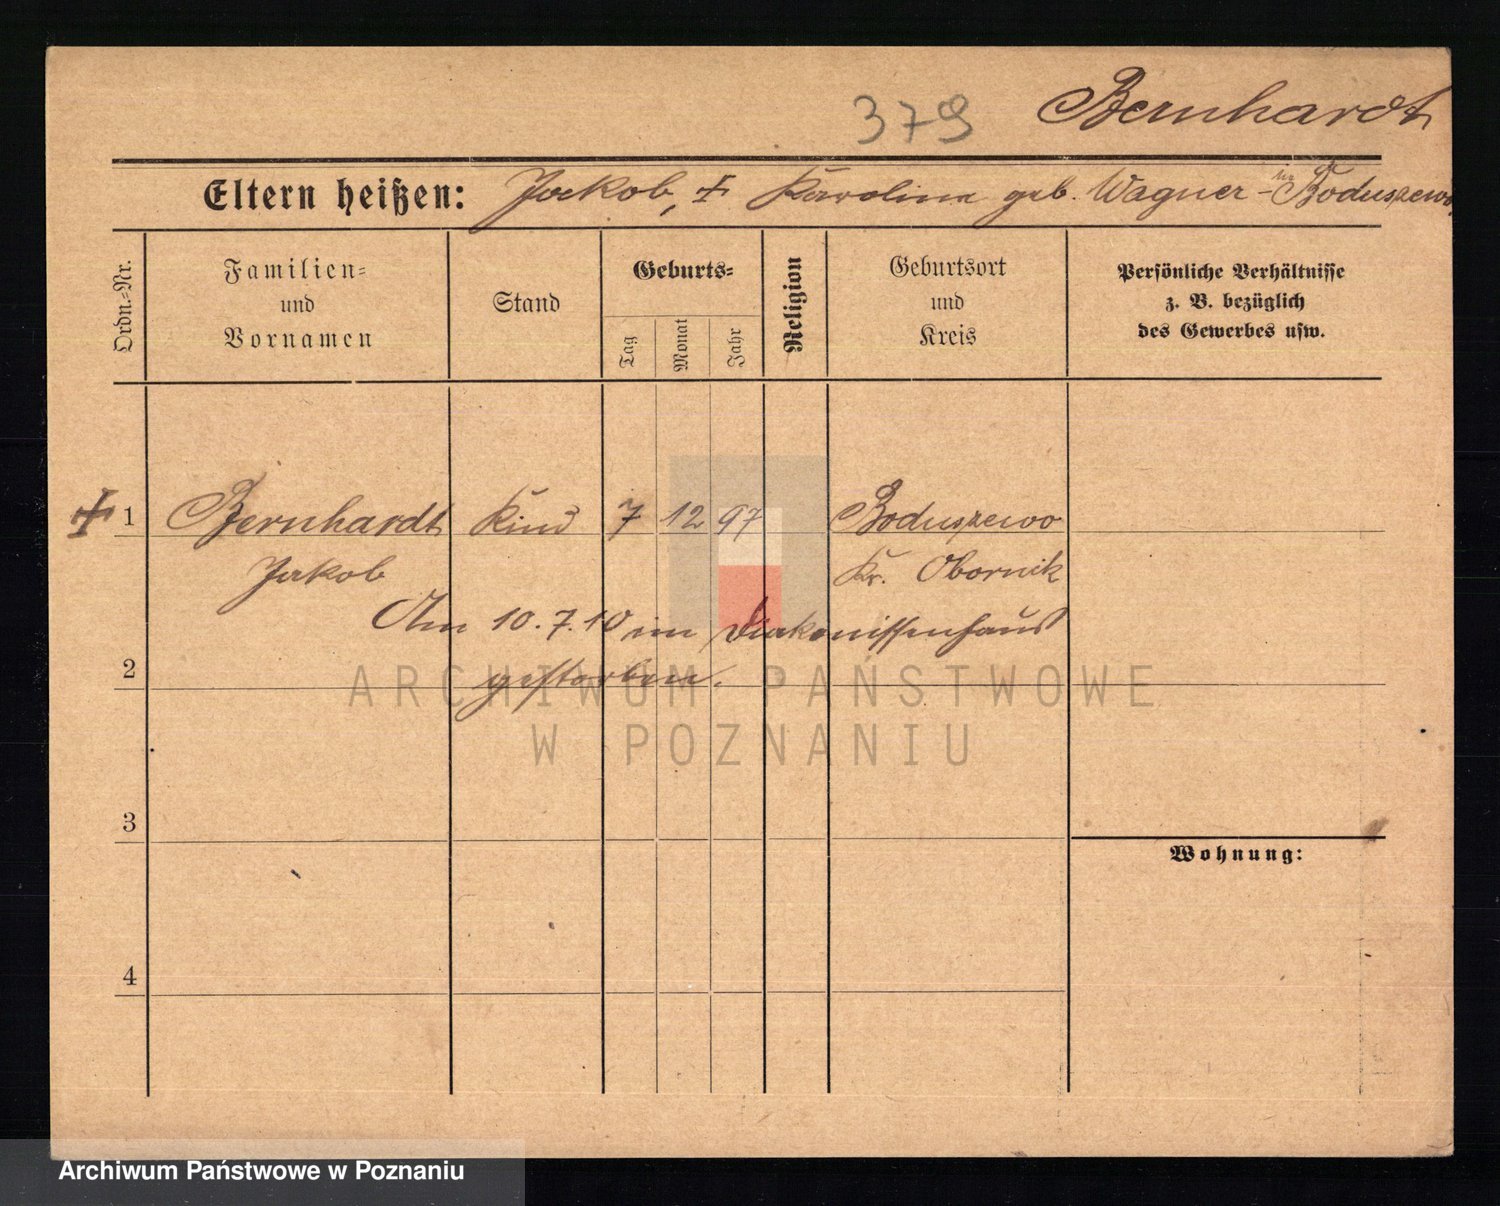 379 Bernhardt
Eltern heißen: Jakob, + Karolina geb. Wagner - in Boduszewo
Ordn.-Nr.
Familien- und Vornamen
Stand
Geburts-
Tag
Monat
Jahr
Religion
Geburtsort und Kreis
Persönliche Verhältnisse
z. B. bezüglich
des Gewerbes usw.
+ 1 Bernhardt Kind 7 12 97 Boduszewo
Jakob Kr. Obornik
Am 10.7.10 im Diakonissenhaus
2 gestorben.
ARCHIWUM PAŃSTWOWE
W POZNANIU
3
Wohnung:
4
Archiwum Państwowe w Poznaniu